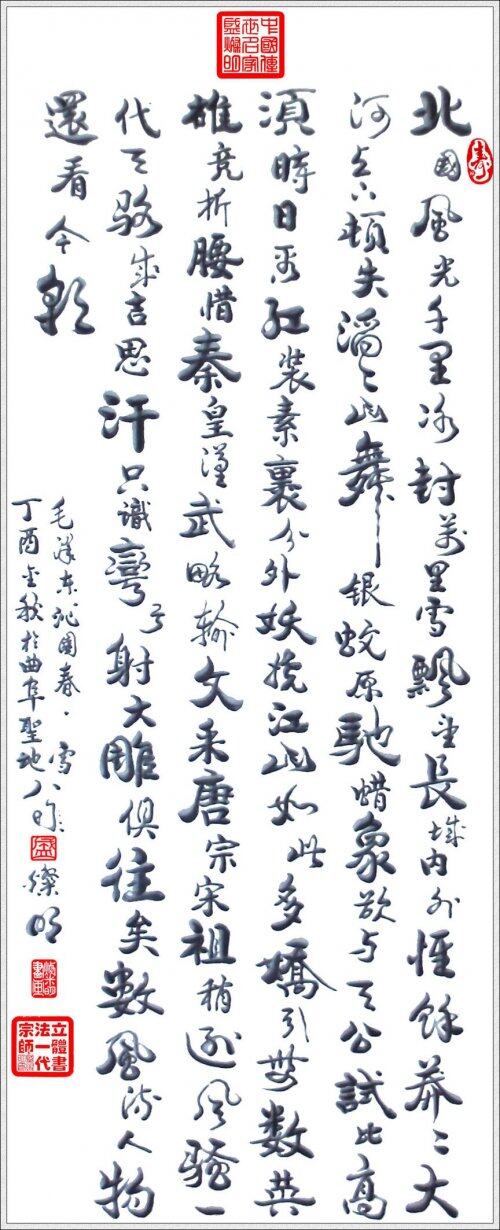 中國傳世名家盛燦明
壽
北國風光千里冰封萬里雪飄望長城内外惟餘莽々大
河上下頓失滔々山舞銀蛟原馳蜡象欲与天公試比高
須時日看红装素裹分外妖娆江山如此多嬌引無数英
雄竞折腰惜秦皇漢武略输文采唐宗宋祖稍逊風骚一
代天骄成吉思汗只識彎弓射大雕俱往矣數風流人物
還看今朝
毛澤东沁園春·雪
丁酉金秋於曲阜聖地
盛
燦明
立體書法一代宗師